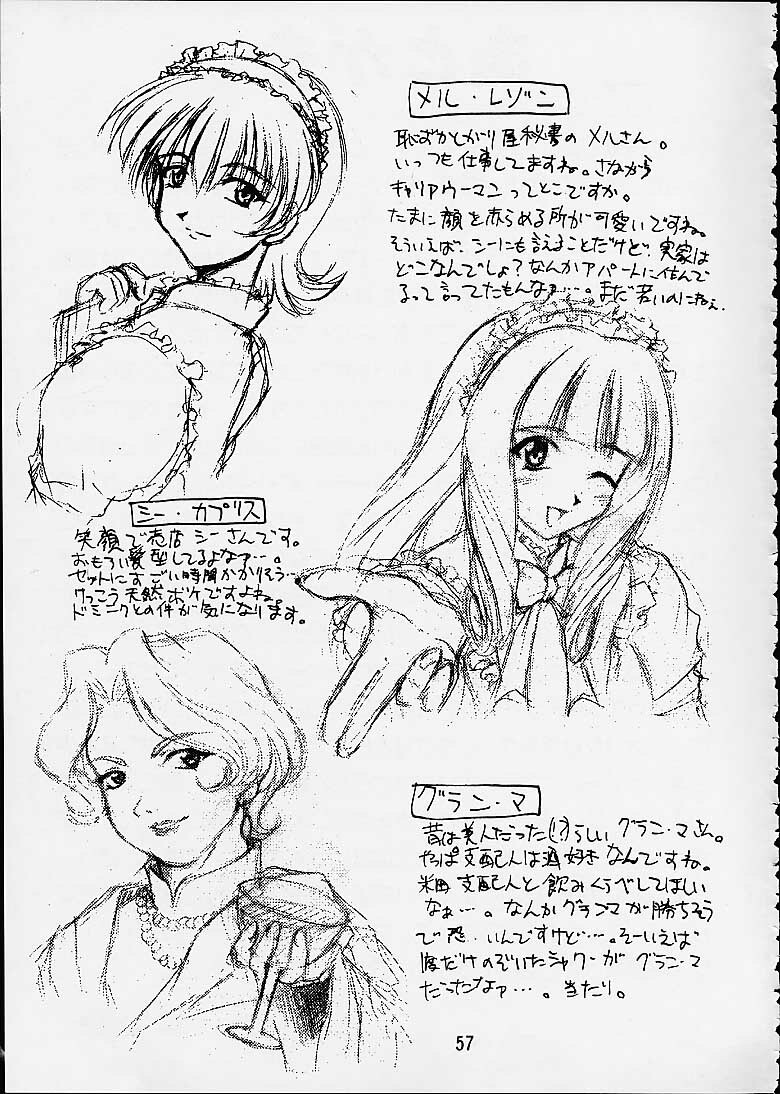 メル・レゾン
恥ずかしがり屋秘書のメルさん。
いっつも仕事してますね。さながら
キャリアウーマンってとこですか。
たまに顔を赤らめる所が可愛いですね。
そういえば、シーにも言えることだけど、実家は
どこなんでしょ？なんかアパートに住んで
るって言ってたもんなァ…。まだ若いのにねェ。
シー・カプリス
笑顔で売店 シーさんです。
おもろい髪型してるよなァ…。
セットにすごい時間かかりそう…
けっこう天然ボケですよね。
ドミニクとの件が気になります。
グラン・マ
昔は美人だった(!?)らしい グラン・マさん。
やっぱ支配人は酒好きなんですね。
米田支配人と飲みくらべしてほしい
なぁ…。なんかグランマが勝ちそう
で恐いんですけど…。そーいえば
度だけのぞいたシャワーが グラン・マ
だったなァ…。当たり。
57